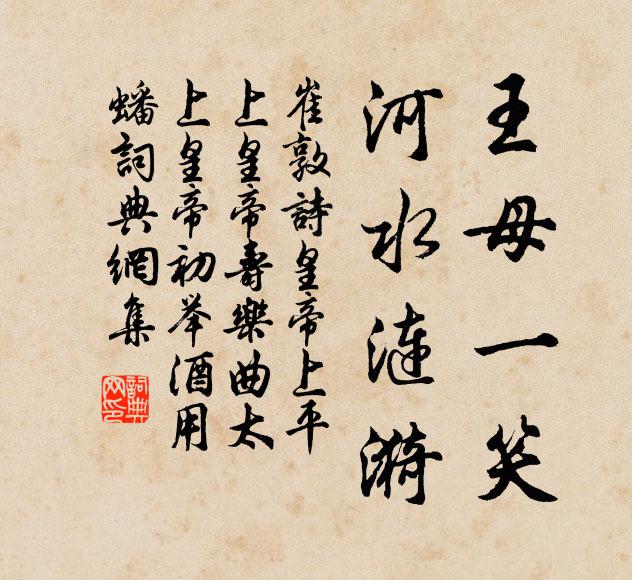 王毋一笑
河水漣漪
崔敦詩皇帝上平
上皇帝壽樂曲太
上皇帝初举酒用
蟠詞典網集
詞典
网印